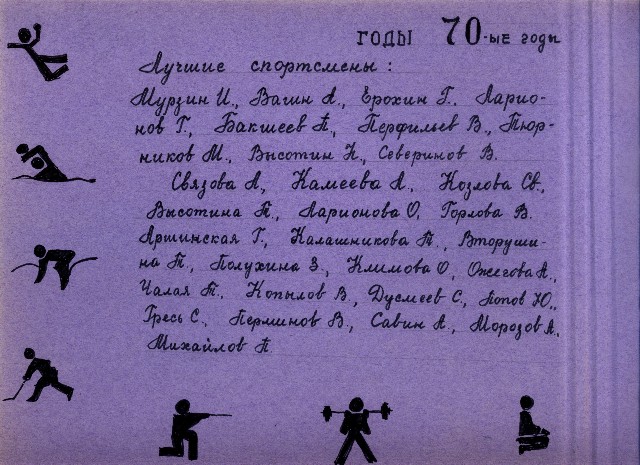 ГОДЫ 70-ые годы
Лучшие спортсмены:
Мурзин И., Вагин А., Ерохин Г., Ларио-
нов Г., Бакшеев П., Перфильев В., Тюр-
ников М., Высотин Н., Северинов В.
Связова А., Камеева А., Козлова Св.,
Высотина Т., Ларионова О, Горлова В.
Аршинская Г., Калашникова Т., Вторуши-
на Т., Полухина З., Климова О, Ожегова А.,
Чалая Т., Копылов В., Дусмеев С., Попов Ю.,
Гресь С., Перминов В., Савин А., Морозов А,
Михайлов П.